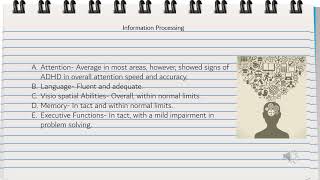 Information Processing
A. Attention- Average in most areas, however, showed signs of
ADHD in overall attention speed and accuracy.
B. Language- Fluent and adequate.
C. Visio spatial Abilities- Overall, within normal limits
D. Memory- In tact and within normal limits.
E. Executive Functions- In tact, with a mild impairment in
problem solving.